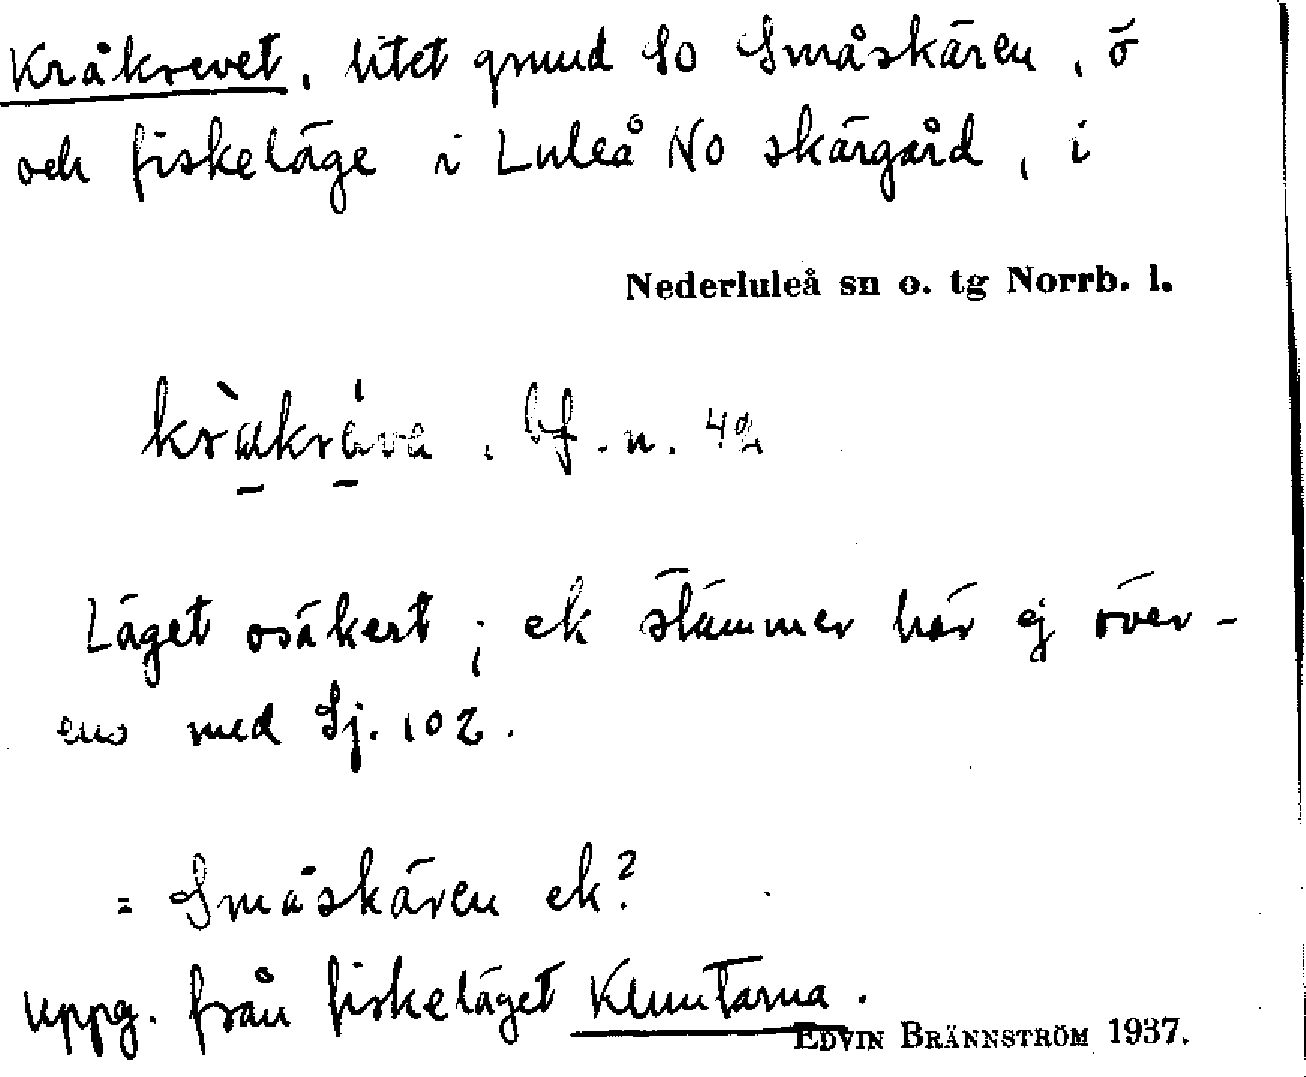 Kråkrevet, litet grund So Småskären, ö
och fiskeläge i Luleå No skärgård, i
Nederluleå sn o. tg Norrb. l.
bf. n. 42
Läget osäkert; ek stämmer här ej över-
ens med Sj. 102.
= Småskären ek?
uppg. från fiskeläget Kluntarna.
EDVIN BRÄNNSTRÖM 1937.